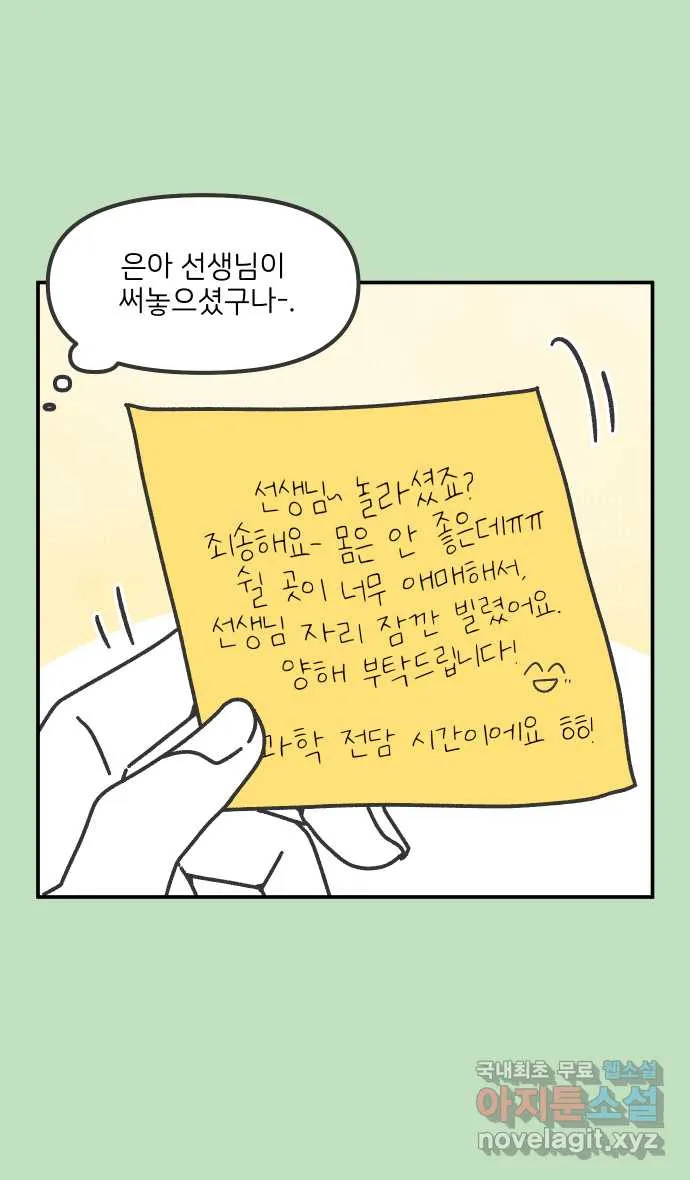 은아 선생님이
써놓으셨구나-.
선생님~ 놀라셨죠?
죄송해요- 몸은 안 좋은데ㅠㅠ
쉴 곳이 너무 애매해서,
선생님 자리 잠깐 빌렸어요.
양해 부탁드립니다!
과학 전담 시간이에요 핡!
국내최초 무료 웹소설
아지툰소설
novelagit.xyz